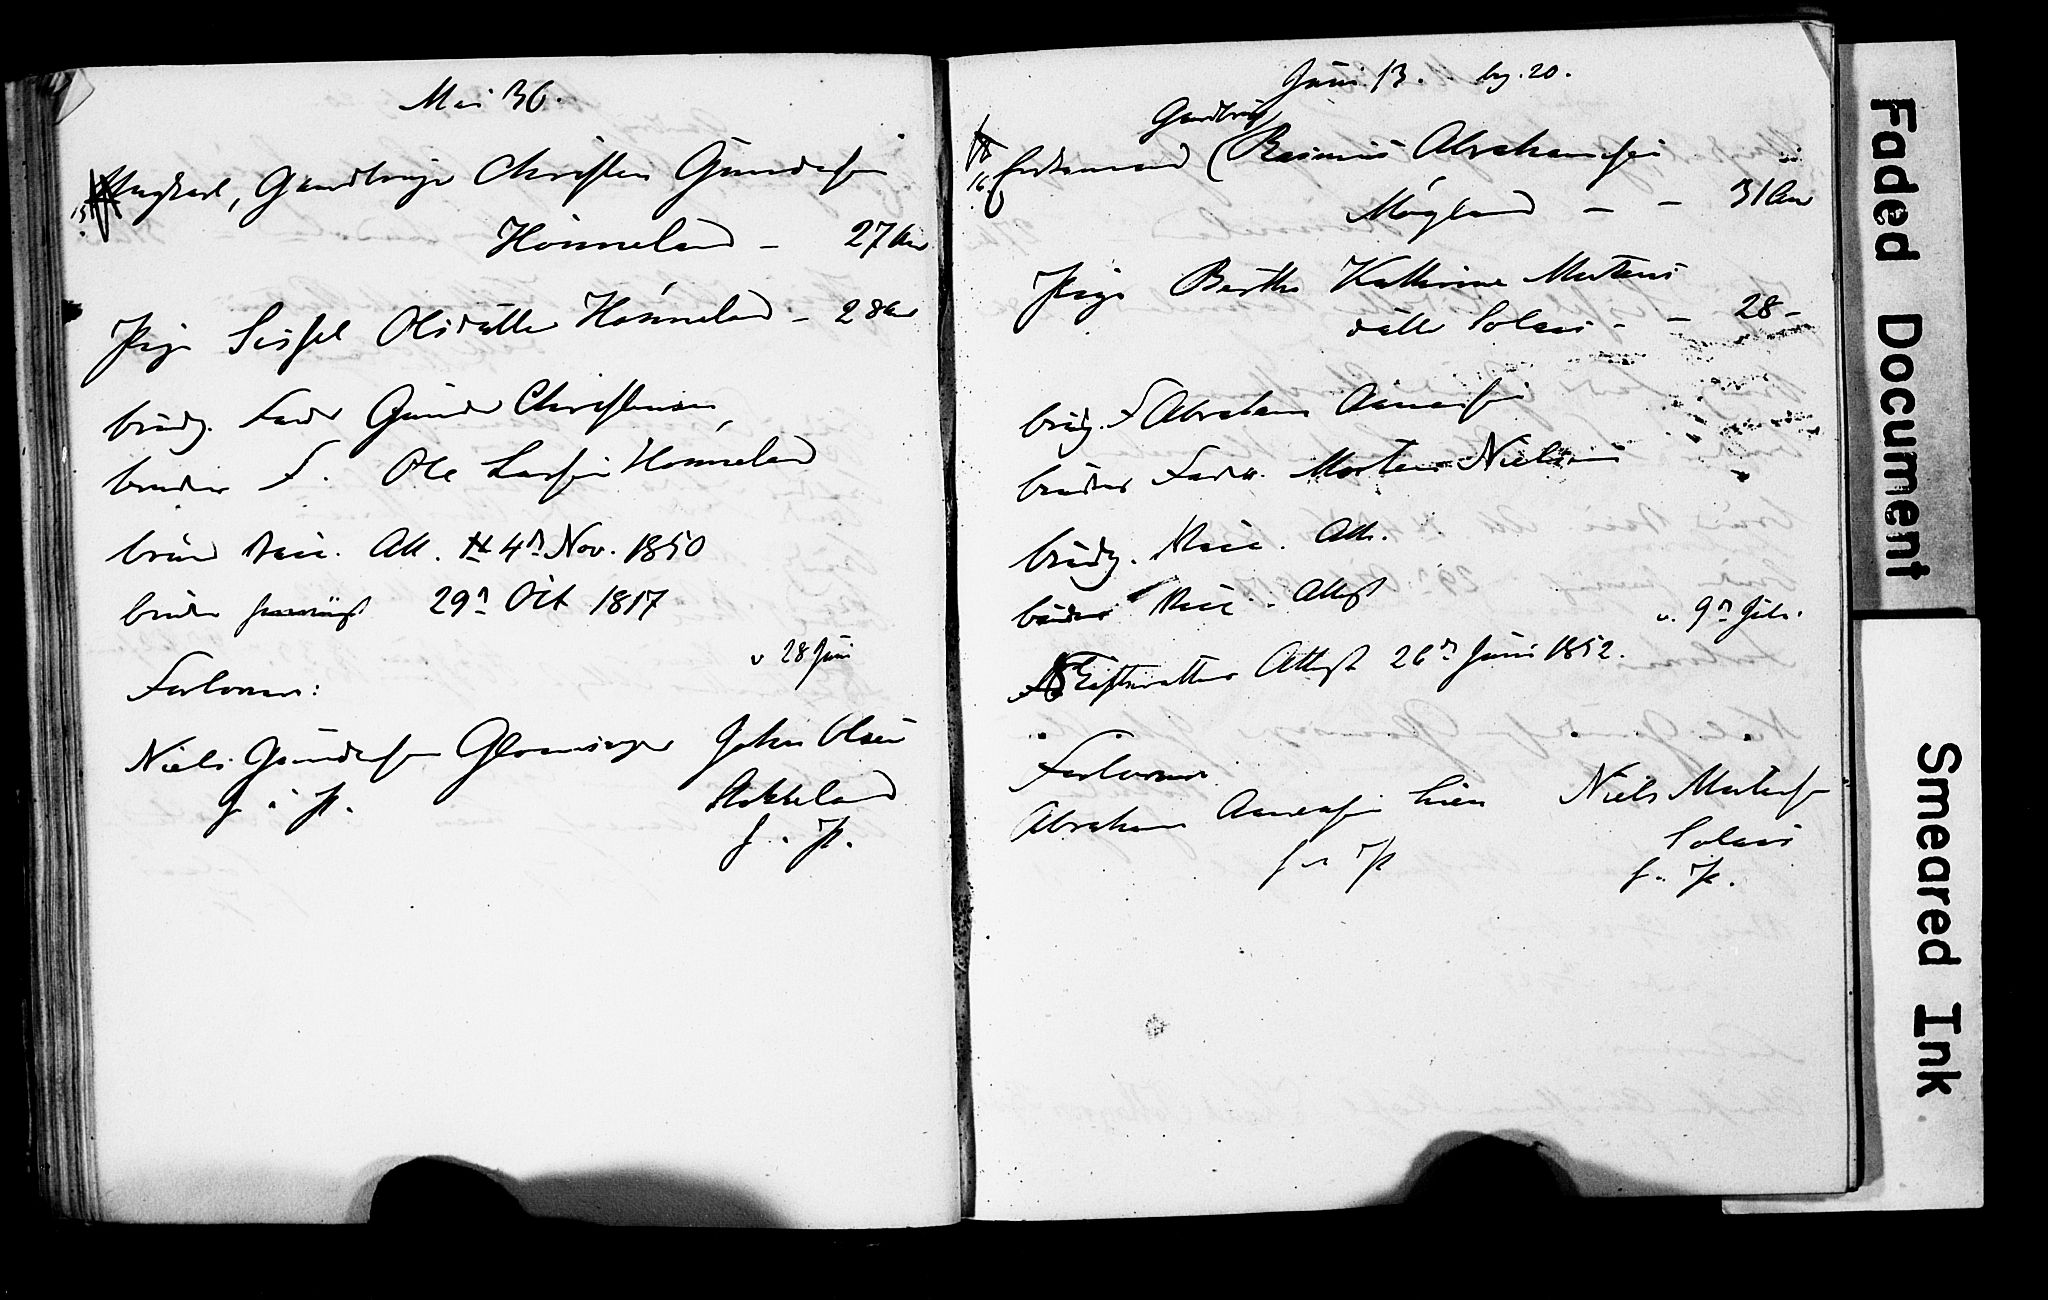 Mai 30.
15. Ungkarl, Gaardbruger Christen Gundersen
Hønneland – 27 Aar
Pige Sissel Olsdatter Hønneland – 28 Aar
brudg. Fader Gunder Christensen
brudens F. Ole Larsen Hønneland
brud Vacc. Att. 4de Nov. 1850
bruden 29de Oct 1817
v 28 Juni
Forlovere:
Niels Gundersen Gloeninger John Olsen
Stokkeland
Juni 13. 20.
Gaardbrug
16. Enkemand (Rasmus Abrahamsen
Møgland – – 31 Aar
Pige Berthe Kathrine Mortens
datter Solaas – – 28 –
brudg. F Abraham Aanensen
brudens Fader Morten Nielsen
brudg. Vacc. Att.
brudens Vacc. Attest
v. 9de Juli.
Skifteretten Attest 26de Juni 1852.
Forlovere
Abraham Aanensen Lien Niels Mortensen
Solaas
Faded Document
Smeared Ink